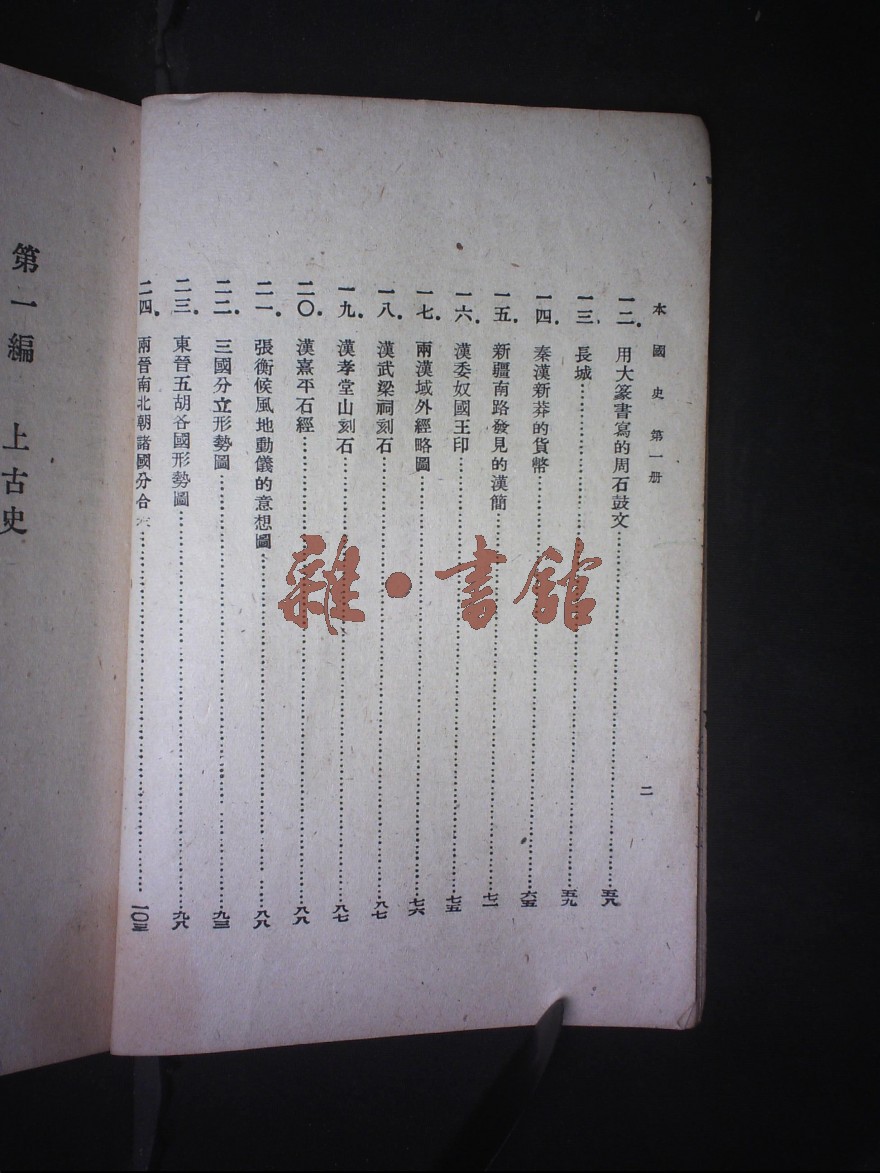 本國史 第一册
二
一二. 用大篆書寫的周石鼓文……五八
一三. 長城……五九
一四. 秦漢新莽的貨幣……六五
一五. 新疆南路發見的漢簡……七一
一六. 漢委奴國王印……七五
一七. 兩漢域外經略圖……七六
一八. 漢武梁祠刻石……八七
一九. 漢孝堂山刻石……八七
二〇. 漢熹平石經……八八
二一. 張衡候風地動儀的意想圖……八八
二二. 三國分立形勢圖……九三
二三. 東晉五胡各國形勢圖……九八
二四. 兩晉南北朝諸國分合……一〇三
第一編 上古史
雜·書館